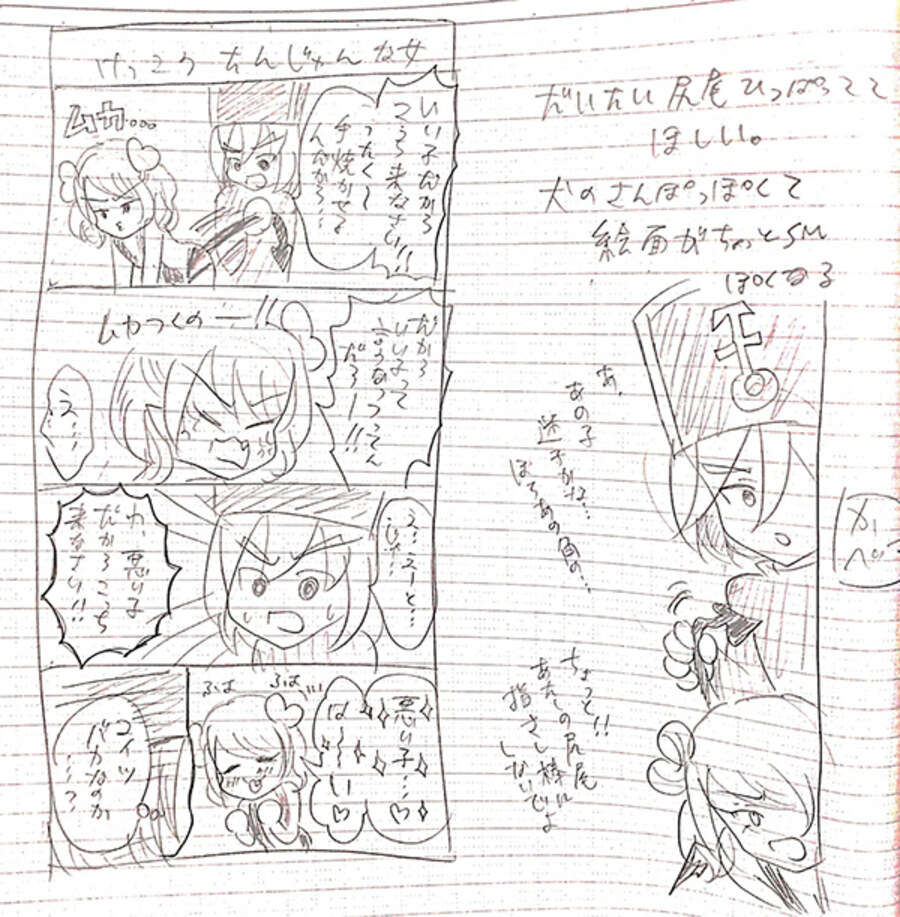 けっこうたんじゅんな女
いい子だから
こっち来なさい!!
ったく〜
手焼かせて
んだから…
ムカ…
だから
いい子って
言うなつってん
だろーー!!
ムカつくのー!!
う…
え…えーと…
じゃ…
わ、悪い子
だからこっち
来なさい!!
悪い子…♡
は〜い♡
ふは
ふは
コイツ
バカなのか
…?
だいたい尻尾ひっぱってて
ほしい。
犬のさんぽっぽくて
絵面がちょっとSM
ぽくなる
あ、
あの子
迷子かな…
ほらあの角の…
ちょっと!!
あたしの尻尾
指さし棒に
しないでよ